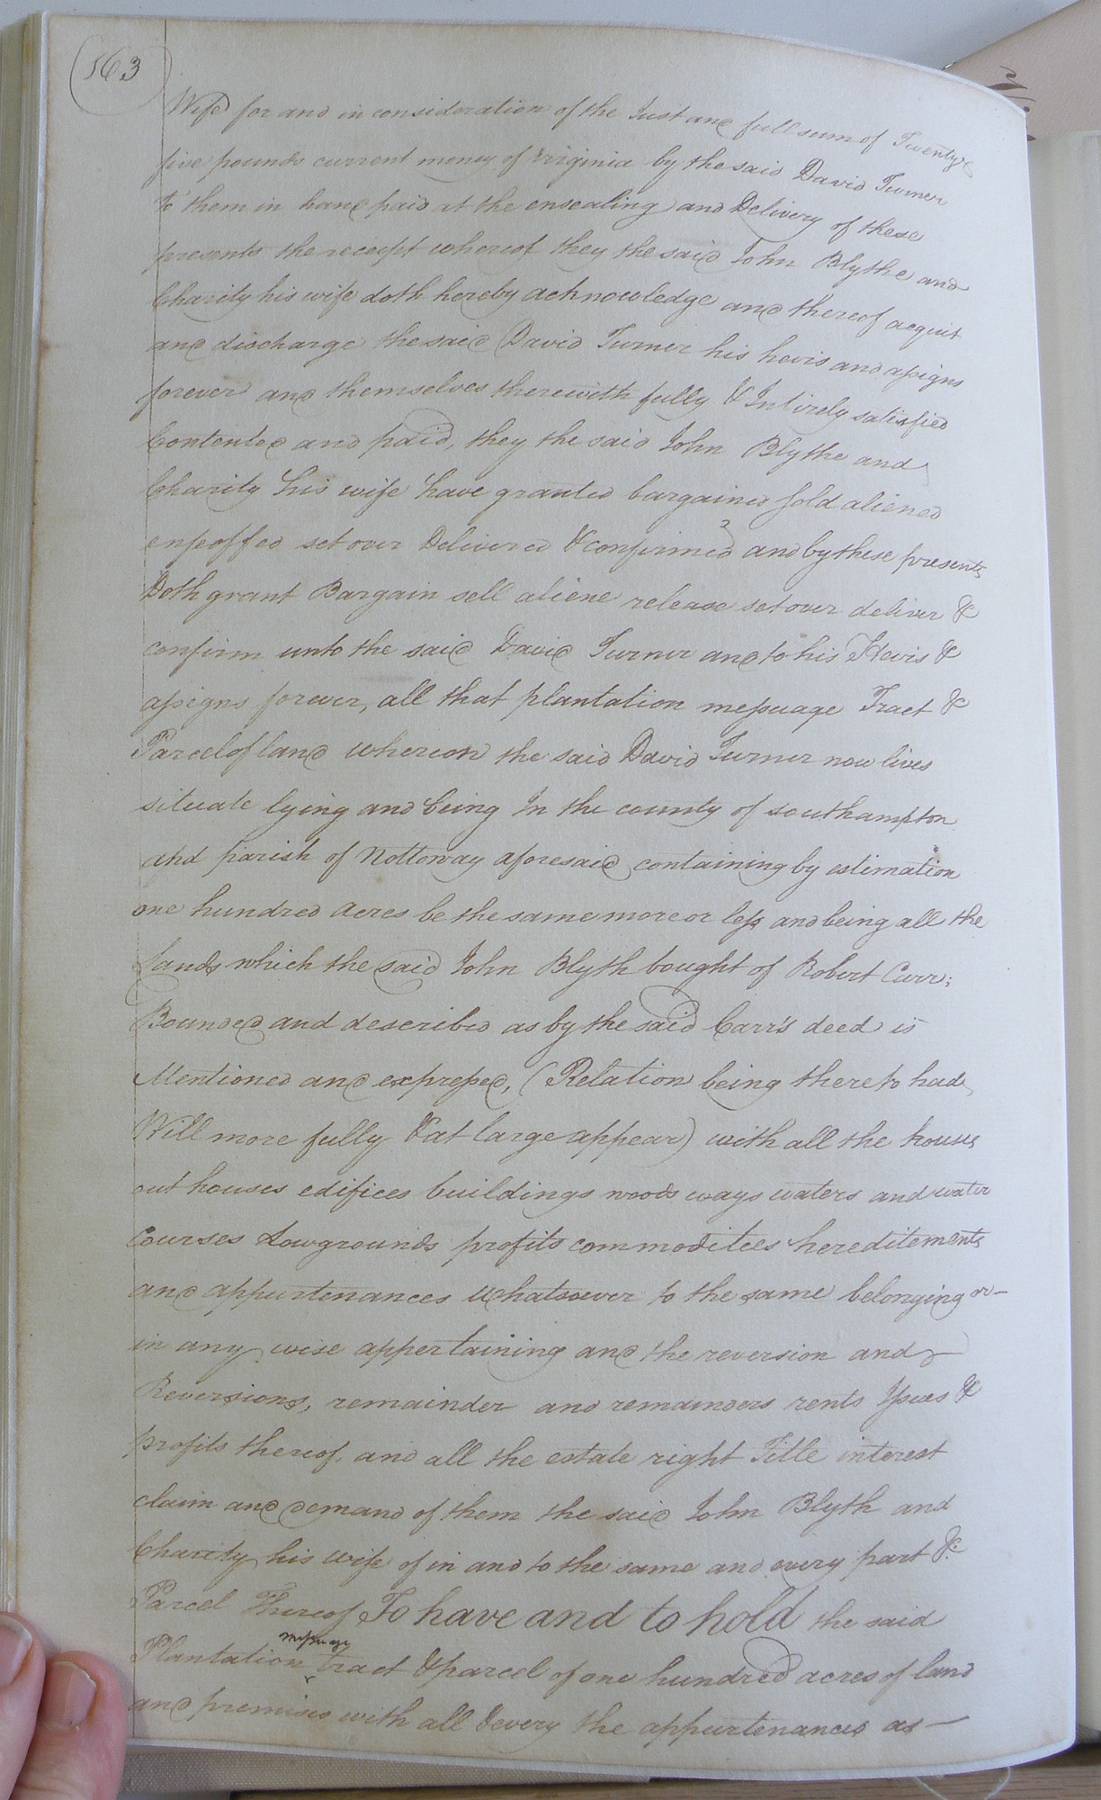 163
Wife for and in consideration of the Just and full sum of Twenty
five pounds current money of Virginia by the said David Turner
to them in hand paid at the ensealing and Delivery of these
presents the receipt whereof they the said John Blythe and
Charity his wife doth hereby acknowledge and thereof acquit
and discharge the said David Turner his heirs and assigns
forever and themselves therewith fully & Intirely satisfied
Contented and paid, they the said John Blythe and
Charity his wife have granted bargained sold aliened
enfeoffed set over Delivered & confirmed and by these presents
Doth grant Bargain sell aliene release set over deliver &
confirm unto the said David Turner and to his Heirs &
assigns forever, all that plantation messuage Tract &
Parcel of land whereon the said David Turner now lives
situate lying and being In the county of Southampton
and parish of Nottoway aforesaid containing by estimation
one hundred acres be the same more or less and being all the
Lands which the said John Blyth bought of Robert Carr;
Bounded and described as by the said Carr's deed is
Mentioned and expressed, (Relation being thereto had,
Will more fully & at large appear) with all the houses
out houses edifices buildings woods ways waters and water
Courses Lowgrounds profits commodities hereditements
and appurtenances whatsoever to the same belonging or
in any wise appertaining and the reversion and
Reversions, remainder and remainders rents Issues &
profits thereof, and all the estate right Title interest
claim and demand of them the said John Blyth and
Charity his wife of in and to the same and every part &
Parcel Thereof To have and to hold the said
messuage
Plantation ^ tract & parcel of one hundred acres of land
and premises with all & every the appurtenances as